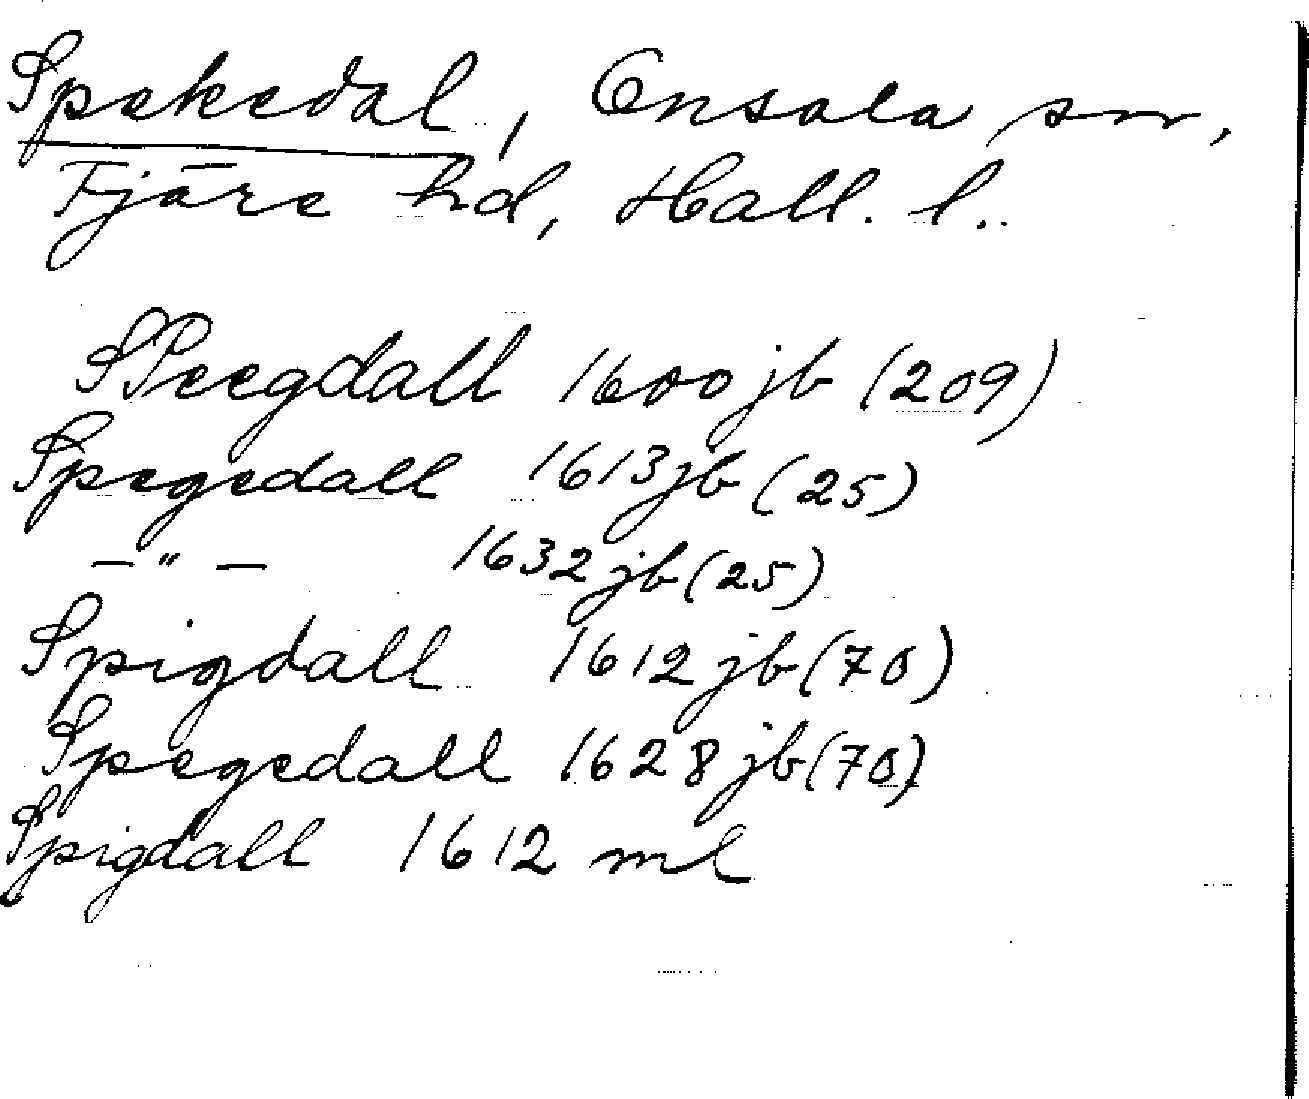 Spekedal, Onsala sn,
Fjäre hd, Hall. l.
SPeegdall 1600 jb (209)
Spegedall 1613 jb (25)
— " — 1632 jb (25)
Spigdall 1612 jb (70)
Spegedall 1628 jb (70)
Spigdall 1612 ml